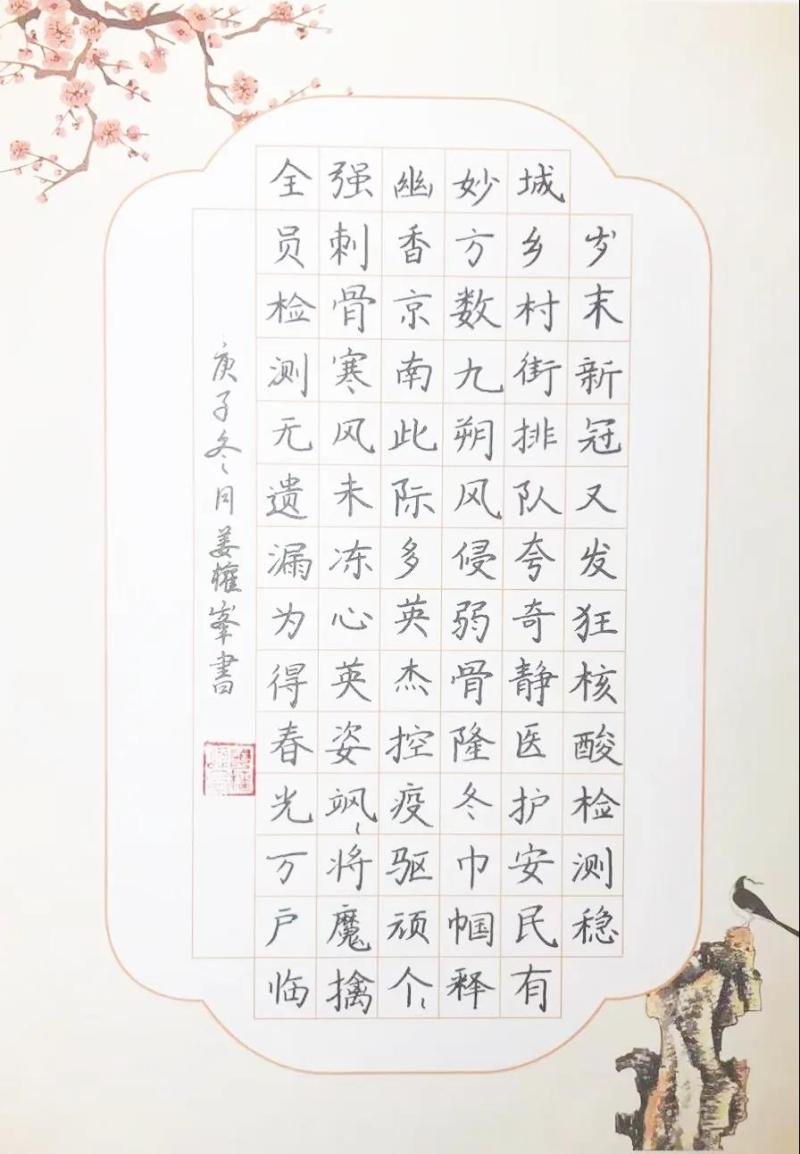 岁末新冠又发狂核酸检测稳
城乡村街排队夸奇静医护安民有
妙方数九朔风侵弱骨隆冬巾帼释
幽香京南此际多英杰控疫驱顽个〻
强刺骨寒风未冻心英姿飒〻将魔擒
全员检测无遗漏为得春光万户临
庚子冬月姜權峯書